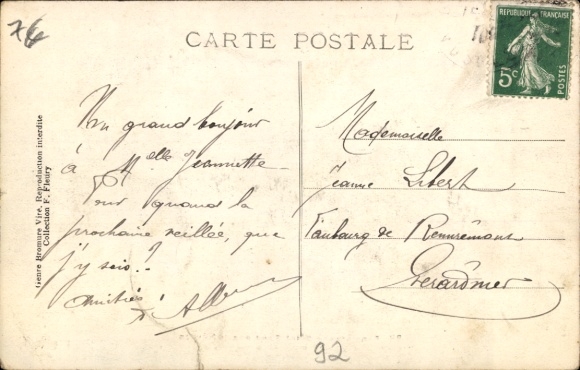 76
CARTE POSTALE
REPUBLIQUE FRANÇAISE
5c
POSTES
Genre Bromure Vire, Reproduction interdite
Collection F. Fleury
Un grand bonjour
à Melle Jeannette
Pour quand la
prochaine veillée, que
j'y sois ?
Amitiés
Mademoiselle
Jeanne Libert
Faubourg de Remiremont
Gérardmer
92